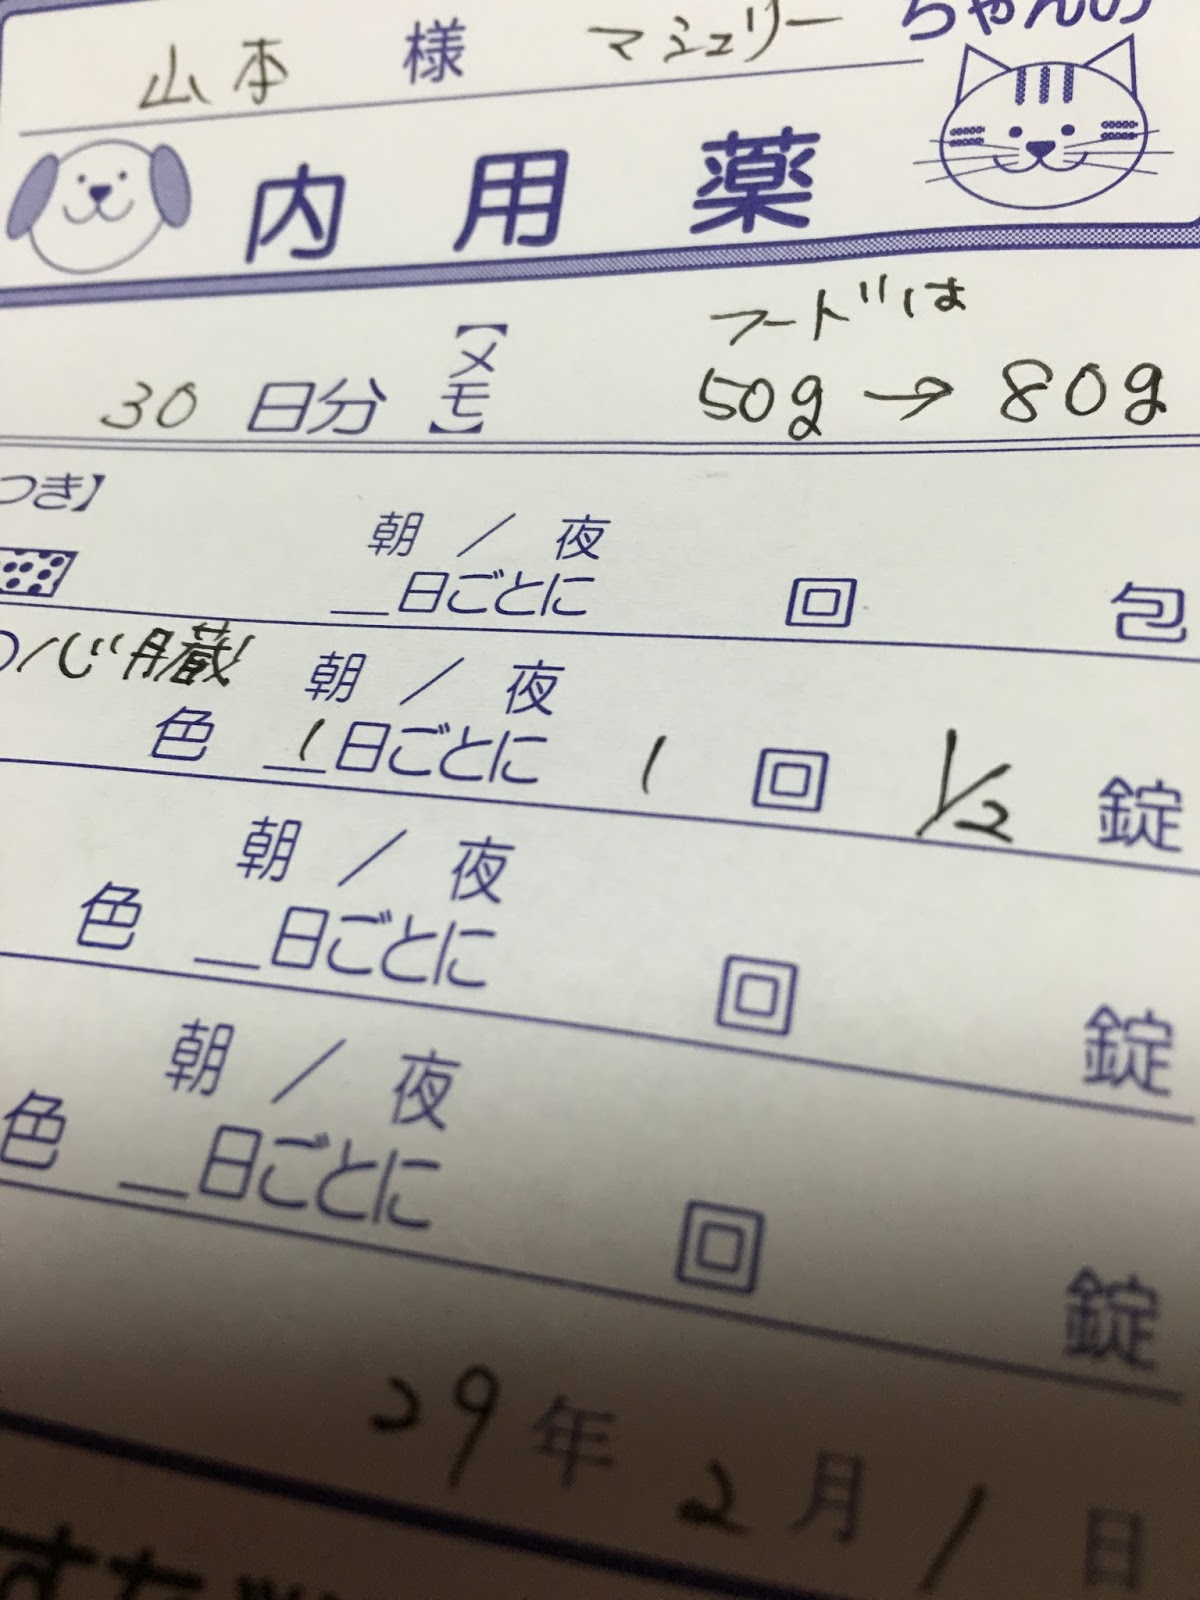 山本 様 マシュリー ちゃんの
内用薬
30 日分 【メモ】 フードは
50g → 80g
つき】
朝 / 夜
＿日ごとに 回 包
心臓 朝 / 夜
色 1日ごとに 1 回 1/2 錠
朝 / 夜
色 ＿日ごとに 回 錠
朝 / 夜
色 ＿日ごとに 回 錠
29年 2月 1日